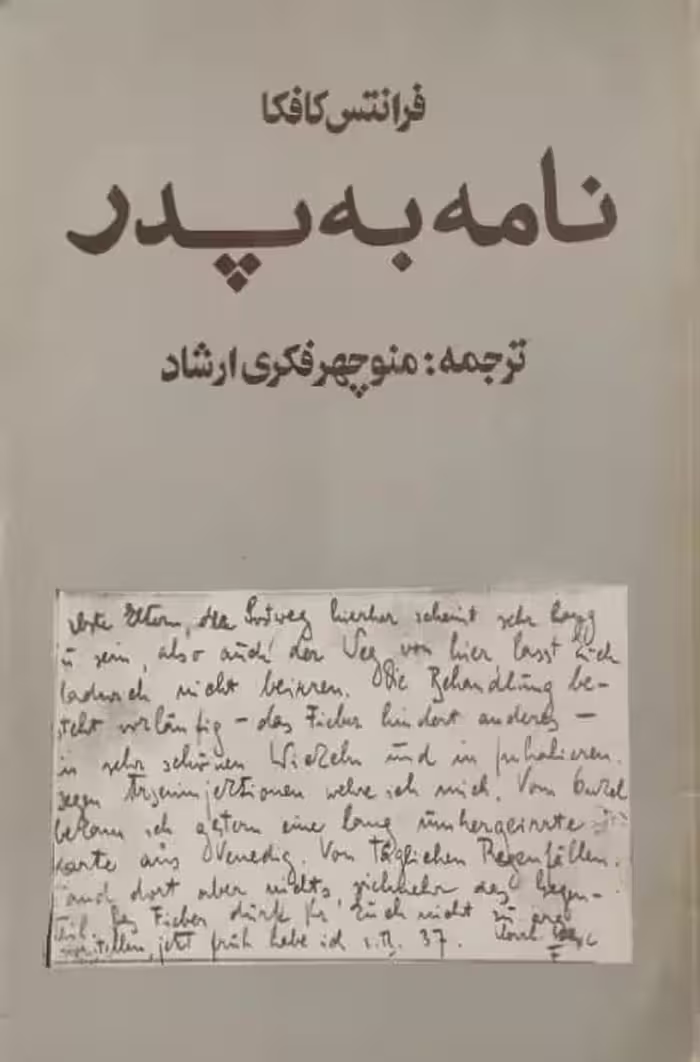 فرانتس کافکا
نامه به پدر
ترجمه: منوچهر فکری ارشاد
Eltern, der Postweg hierher scheint sehr lang
zu sein, also auch der Weg von hier, lasst Euch
dadurch nicht beirren. Die Behandlung be-
steht vorläufig – das Fieber hindert anderes –
in sehr schönen Wickeln und in Inhalieren.
gegen Arseninjektionen wehre ich mich. Vom Onkel
bekam ich gestern eine lang umhergeirrte
Karte aus Venedig. Von täglichen Regenfällen
dort aber nichts, vielmehr das Gegen-
teil. Fieber dürft Ihr Euch nicht zu arg
vorstellen, jetzt früh habe ich 37.
F